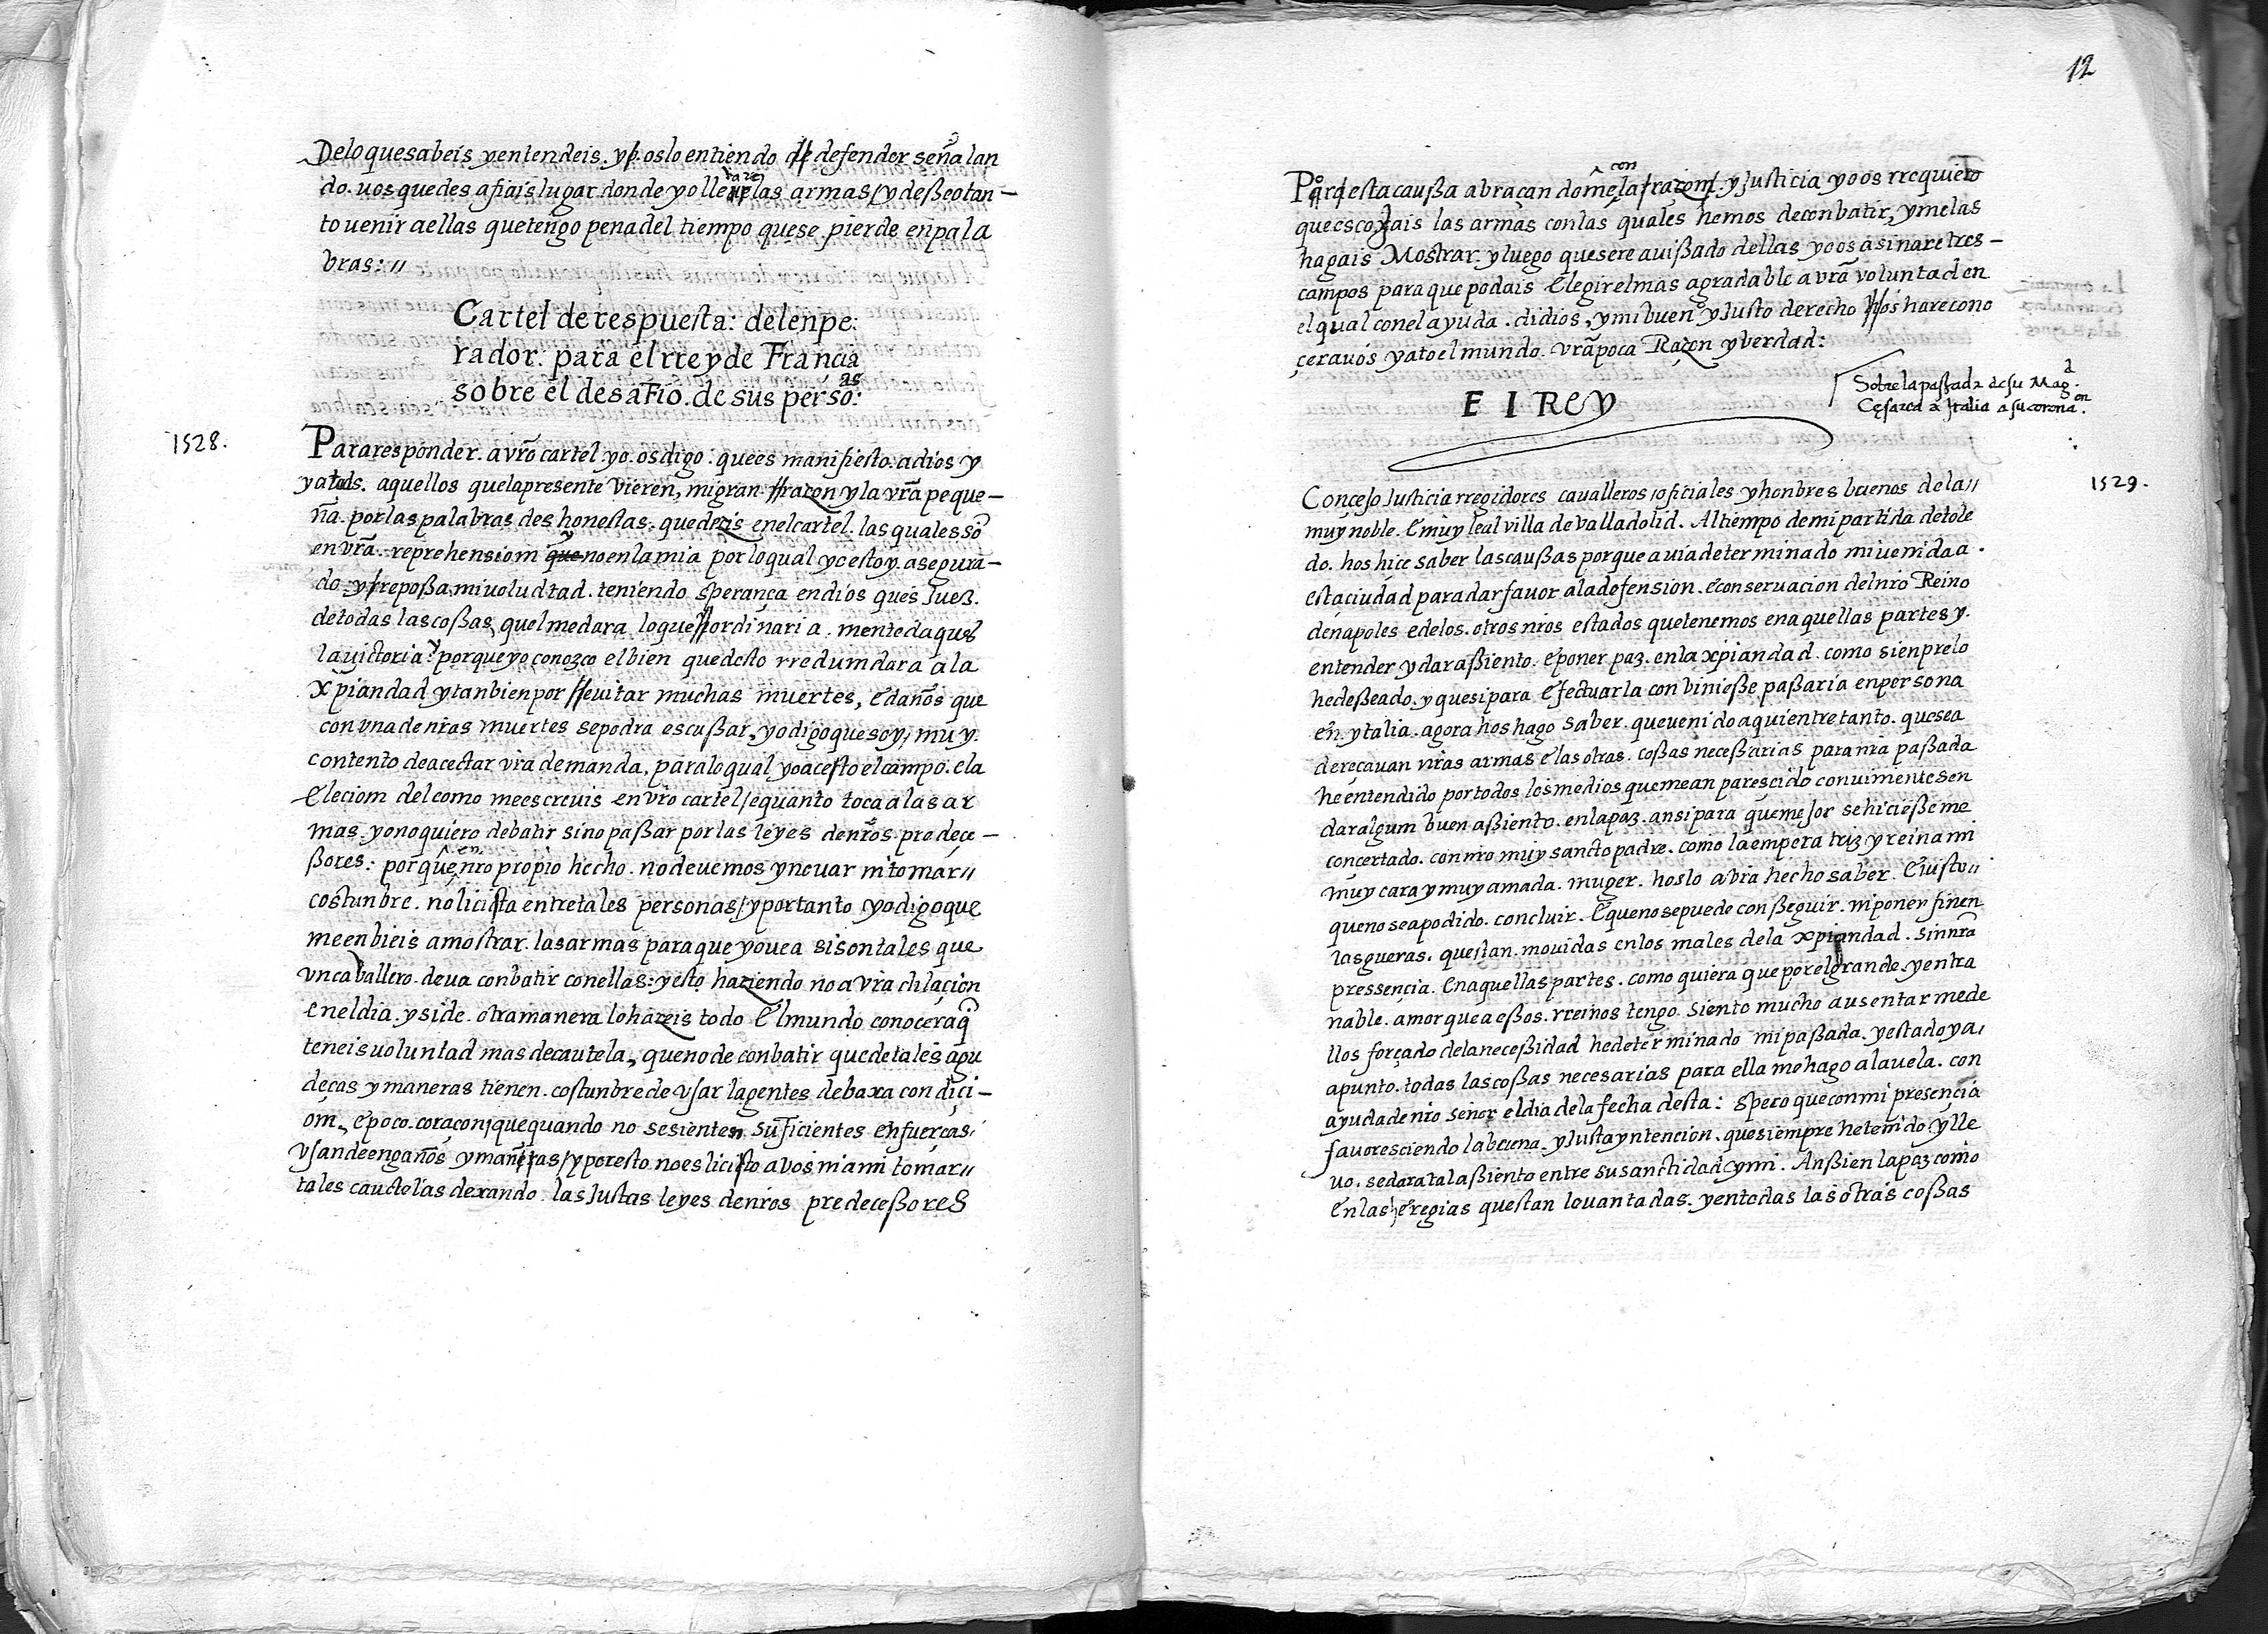 Deloquesabeis yentendeis. yo. oslo entiendo de defender señalan
do. uos quedes afiais lugar donde yo lleuare las armas / y deßeo tan—
to uenir a ellas que tengo pena del tiempo que se pierde en pala
bras: //
Cartel de respuesta: del enpe:
rador: para el rrey de Francia
sobre el desafio. de sus persoas:
1528.
Para responder. a vrõ cartel yo. os digo: que es manifiesto. a dios y
ya tods. aquellos que la presente vieren, mi gran razon y la vrã peque—
ña. por las palabras des honestas. que dezis en el cartel. las quales sõ
en vrã. reprehensiom y no en la mia por lo qual yo estoy. asegura—
do. y repoßa mi voludtad. teniendo sperança en dios ques Jueß.
de todas las coßas, quel me dara lo que ordinaria. mente da ques
la victoria: y porque yo conozco el bien que desto rredumdara a la
xpiandad y tanbien por euitar muchas muertes, e daños que
con vna de nras muertes se podra escußar, yo digo que soy, muy.
contento de acectar vrã demanda, para lo qual yo acesto el campo. e la
Eleciom del como me escreuis en vrõ cartel / e quanto toca a las ar
mas. yo no quiero debatir sino paßar por las leyes de nrõs. predece—
ßores: porque en nrõ propio hecho. no deuemos ynouar ni tomar //
costunbre. no licista entre tales personas / y por tanto yo digo que
me enbieis a mostrar. las armas para que yo uea si son tales que
vn caballero. deua conbatir con ellas: y esto haziendo no avra dilaçion
en el dia. y si de. otra manera lo hareis todo El mundo conocera q̃
teneis voluntad mas de cautela, que no de conbatir que de tales agu
deças y maneras tienen. costunbre de vsar la gentes de baxa condici—
om., e poco. coraçon, que quando no se sienten suficientes en fuerças,
vsan de engaños y mañas / y por esto. no es licisto a vos ni a mi tomar //
tales cauctelas dexando. las Justas leyes de nrõs predeceßores
12
Por esta caußa abraçandome con la razom. y Justicia yo os rrequiero
que escoxais las armas con las quales hemos de conbatir, y me las
hagais Mostrar. y luego que sere auißado dellas yo os asinare tres—
campos para que podais Elegir el mas agradable a vrã voluntad en
el qual con el ayuda. didios, y mi buen y Justo derecho os hare cono
çer a vos y a to el mundo. vrã poca Razon y verdad:
El Rey
Sobre la paßada de su Magd.
Cęsarea a Italia a su coronaon.
1529.
Concejo Justicia rregidores caualleros, oficiales y honbres buenos de la //
muy noble. E muy leal villa de valladolid. Al tiempo de mi partida de tole
do. hos hice saber las caußas porque auia determinado mi uenida a.
esta ciudad para dar fauor a la defension. e conseruacion del nrõ Reino
de napoles e de los. otros nrõs estados que tenemos en aquellas partes y.
entender y dar aßiento. e poner paz. en la xpiandad. como sienpre lo
he deßeado. y que si para Efectuarla conbinieße paßaria en persona
en. ytalia. agora hos hago saber. que uenido aqui entre tanto. que sea
dereçauan nrãs armas e las otras. coßas neceßarias para nrã paßada
he entendido por todos los medios que me an parescido conuimentes en
dar algum buen aßiento. en la paz. ansi para que mejor se hicieße me
concertado. con nrõ muy sancto padre. como la emperatriz y reina mi
muy cara y muy amada. muger. hos lo abra hecho saber. E uisto //
que no se a podido. concluir. E que no se puede conßeguir. ni poner fin en
las gueras. questan. mouidas en los males de la xpiandad. sin nrã
pressencia. En aquellas partes. como quiera que por el grande. y entra
nable. amor que a eßos. rreinos tengo. siento mucho ausentarme de
llos forçado de la neceßidad he determinado mi paßada. y estado ya,
a punto. todas las coßas necesarias para ella me hago a la uela. con
ayuda de nrõ señor el dia de la fecha desta: spero que con mi presencia
fauoresciendo la buena. y Justa yntencion. que siempre he tenido. y lle
uo. se dara tal aßiento entre su sanctidad y mi. Anßi en la paz como
En las, eregias questan leuantadas. y en todas las otras coßas